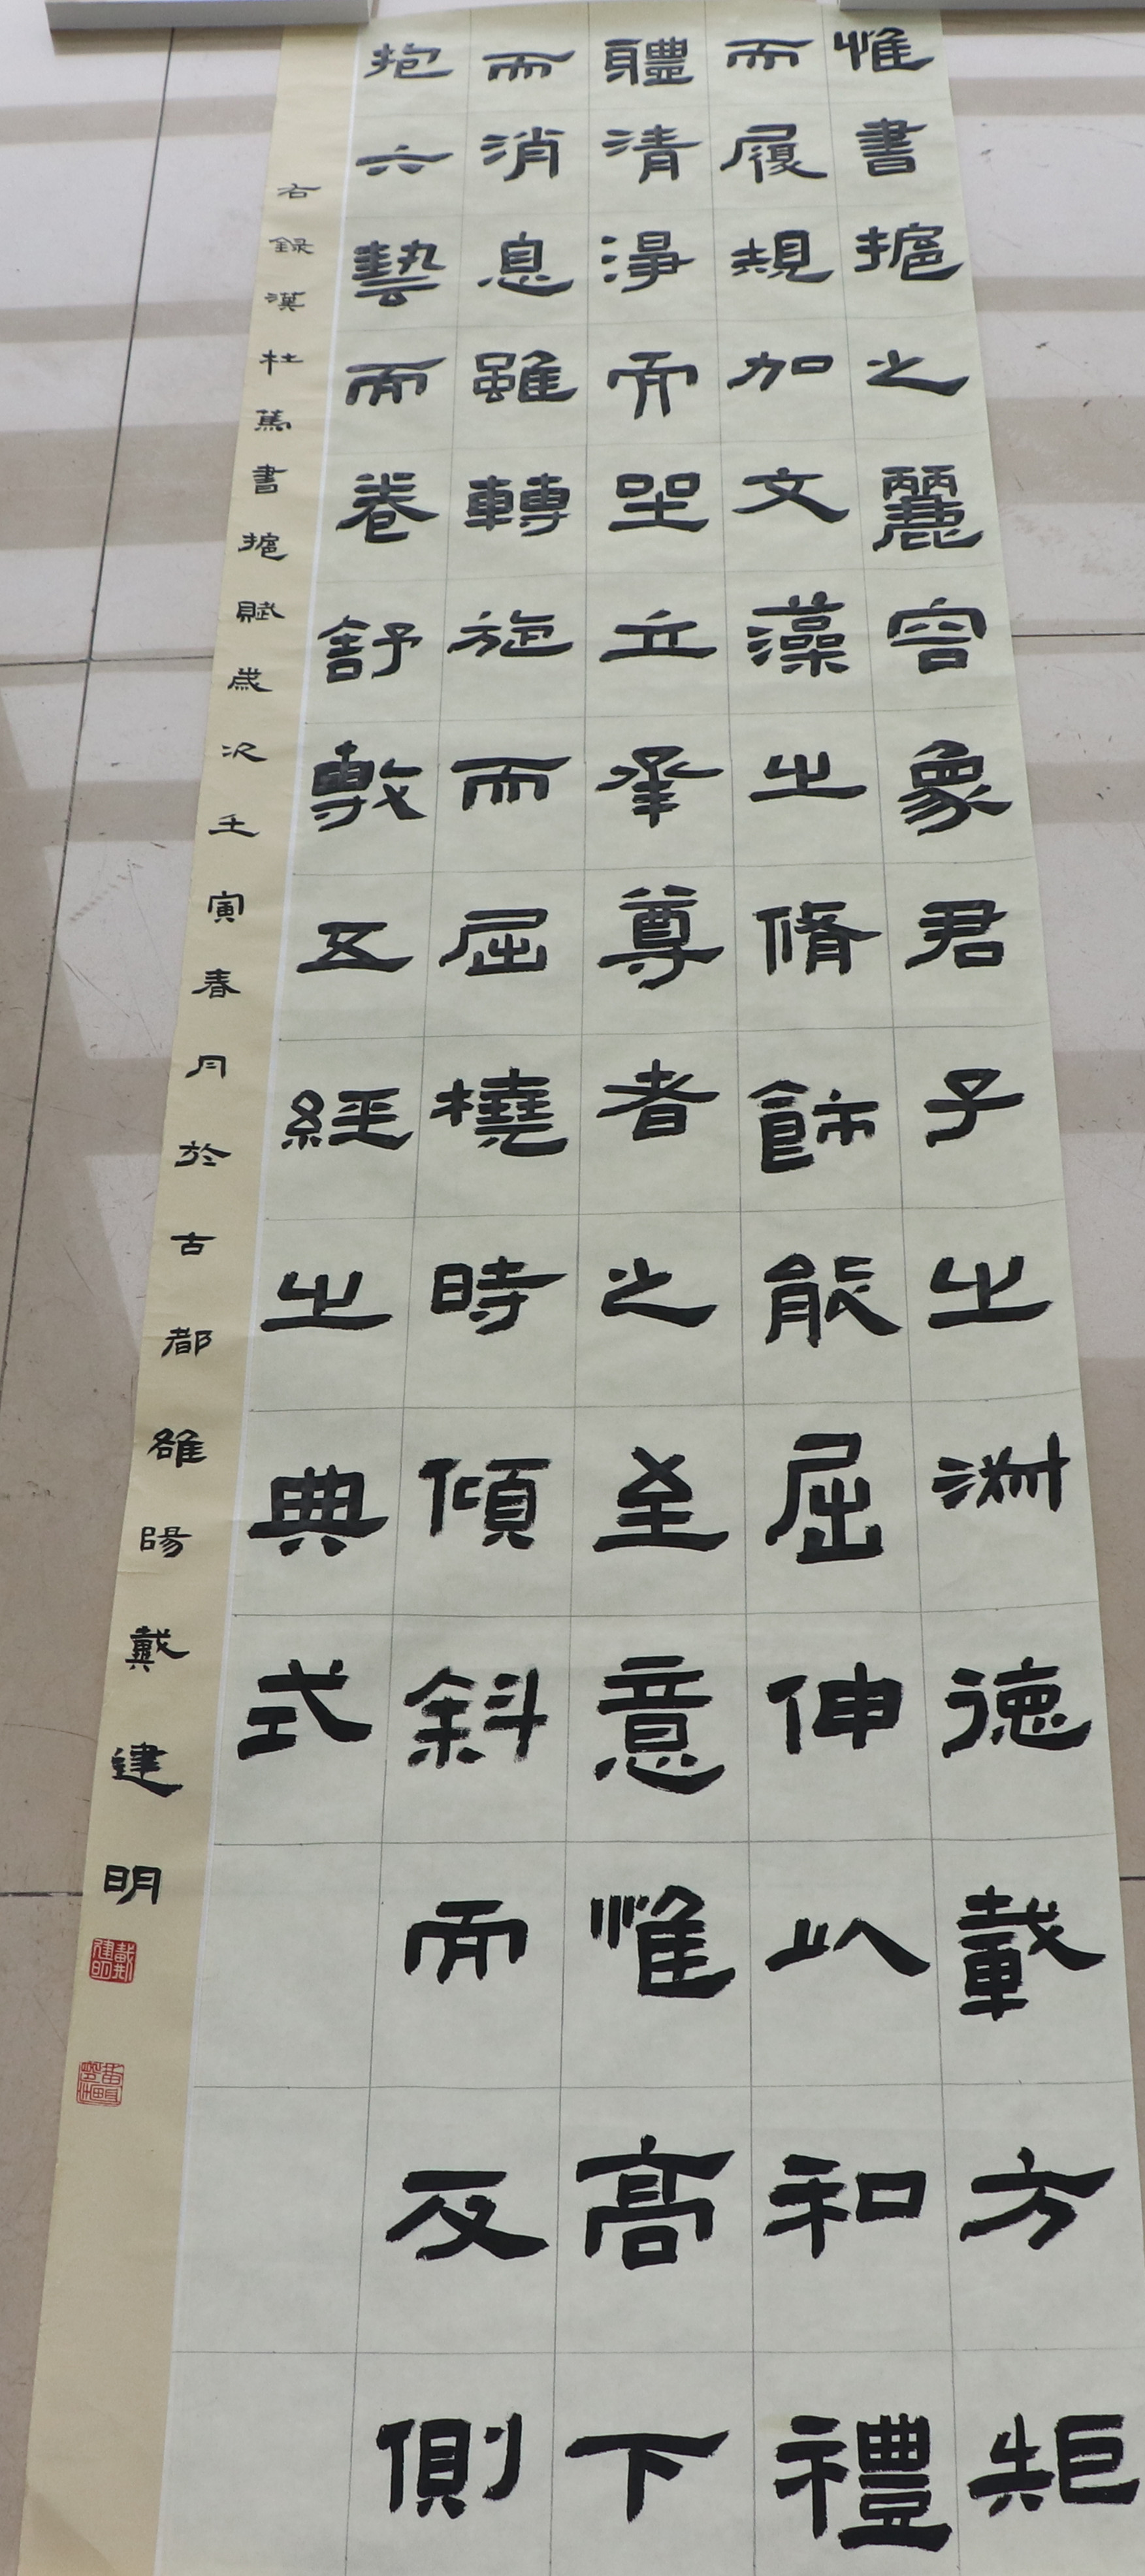 惟書摢之麗容象君子之淑德載方矩
而履規加文藻之脩飾能屈伸以和禮
體清淨而坐立承尊者之至意惟高下
而消息雖轉施而屈橈時傾斜而反側
抱六藝而卷舒敷五經之典式
右錄漢杜篤書摢賦歲次壬寅春月於古都雒陽戴建明
戴建明